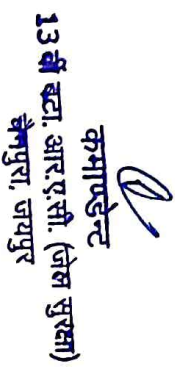 कमाण्डेन्ट
13 वीं बटा. आर.ए.सी. (जेल सुरक्षा)
चैनपुरा, जयपुर